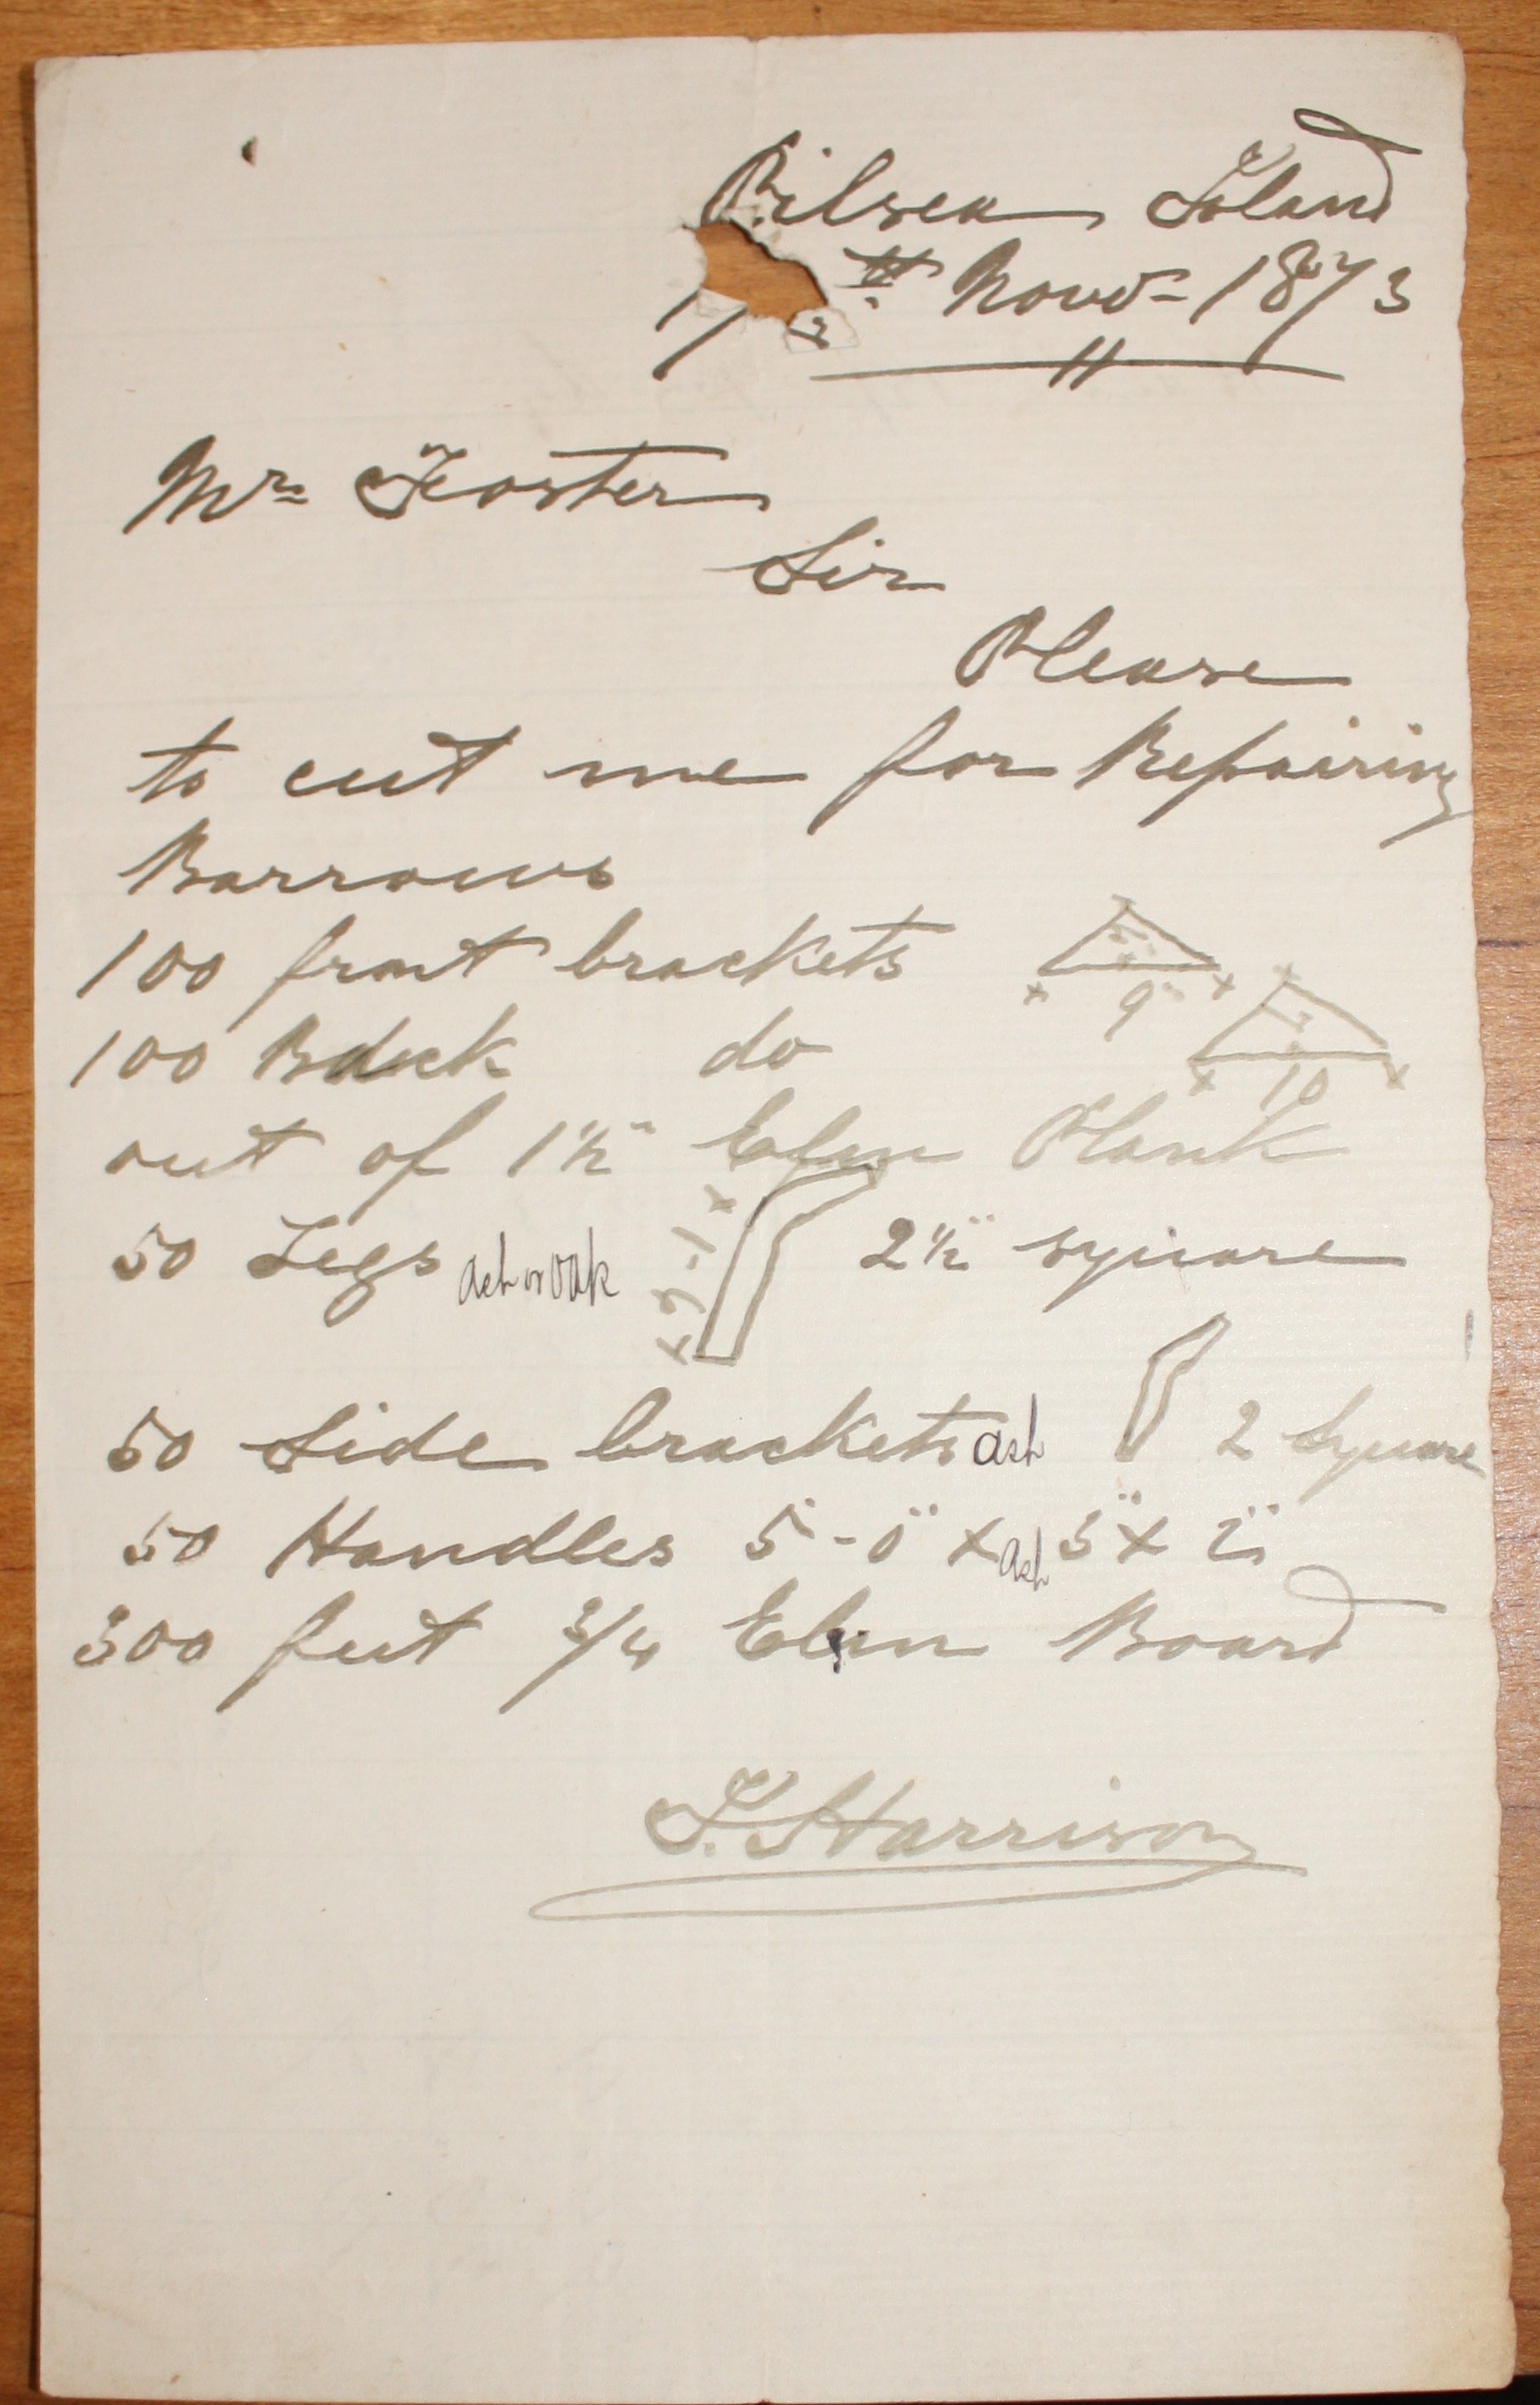 Pilsea Island
17 th Novr 1873
Mr Foster
Sir
Please
to cut me for Repairing
Barrows
100 front brackets
9"
100 Back do
10
out of 1½" Elm Plank
50 Legs ash or oak 2½" square
50 Side brackets ash 2 Square
50 Handles 5'-0" x ash 3" x 2"
300 feet 3/4 Elm Board
T. Harrison